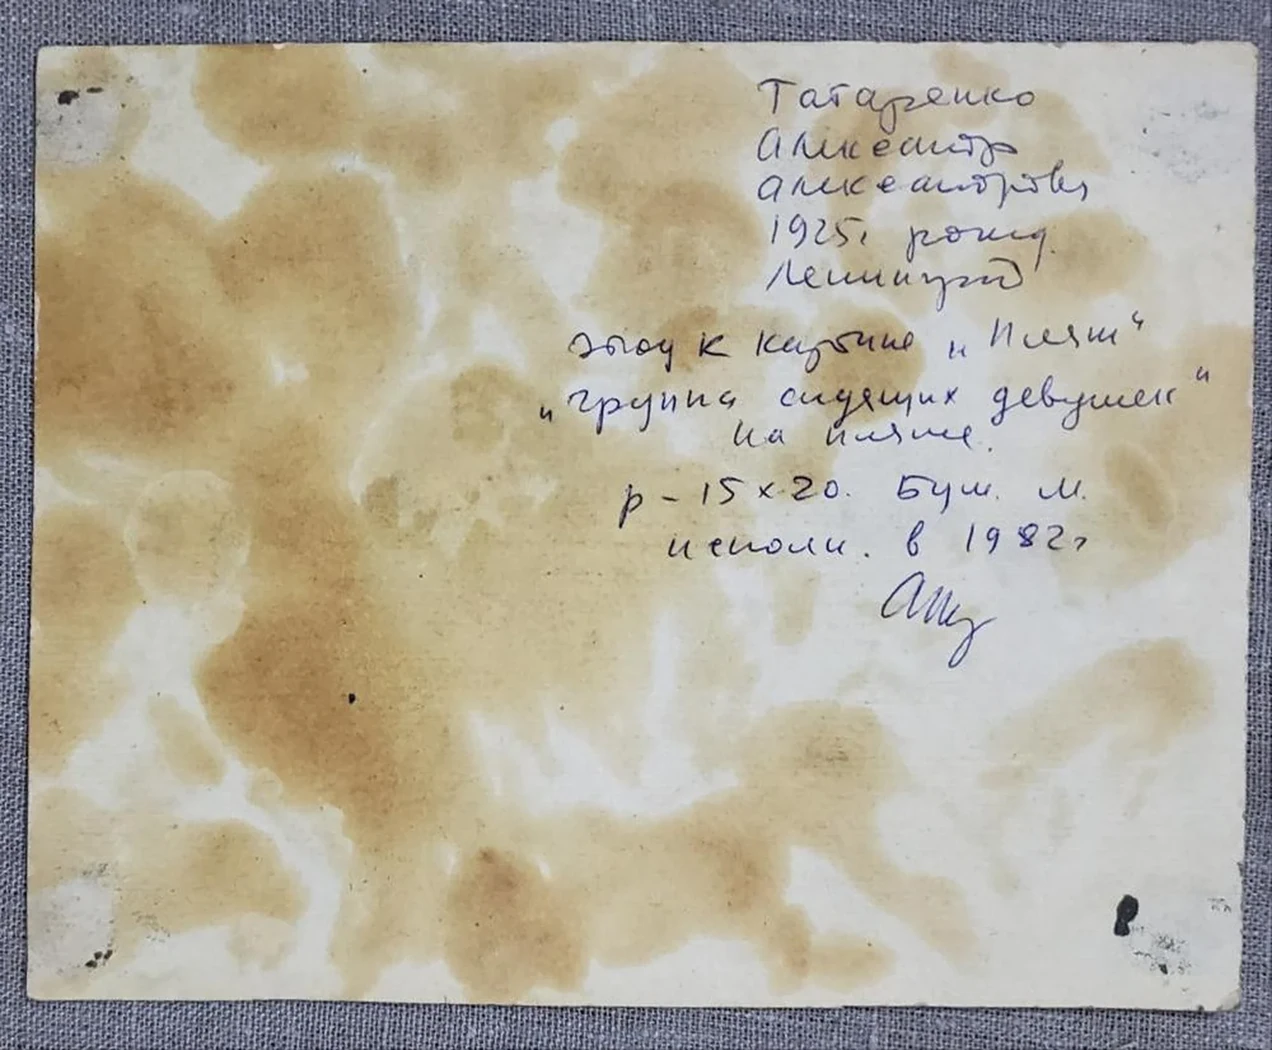 Татаренко
Александр
Александрович
1925г рожд.
Ленинград
этюд к картине „Пляж“
„группа сидящих девушек“
на пляже.
р - 15 х 20. Бум. м.
исполн. в 1982г